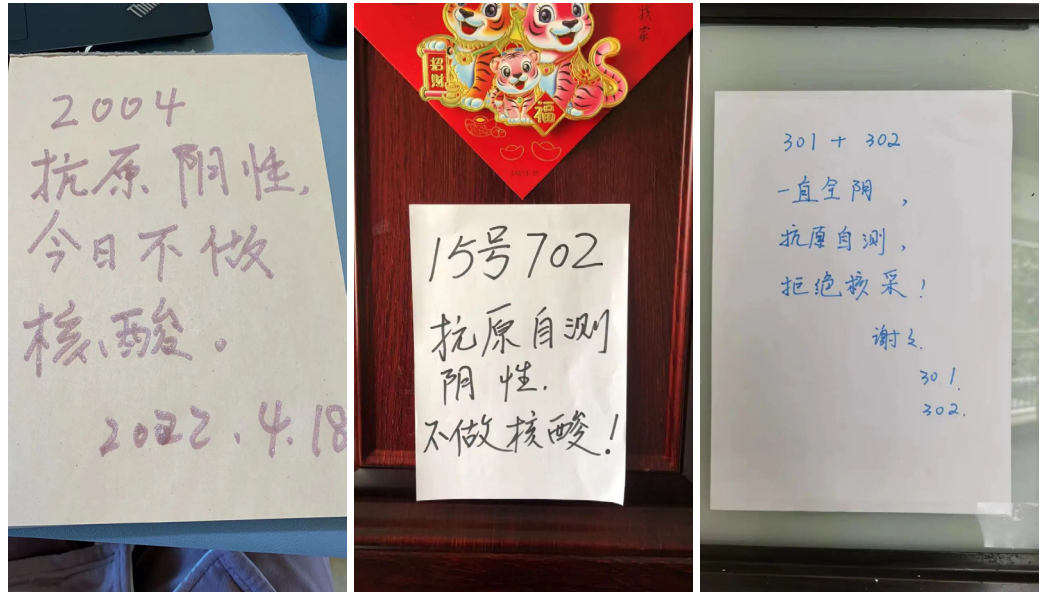 Think
2004
抗原阴性,
今日不做
核酸。
2022.4.18
找家
招财
福
15号702
抗原自测
阴性.
不做核酸!
301 + 302
一直全阴,
抗原自测,
拒绝核采!
谢谢.
301.
302.